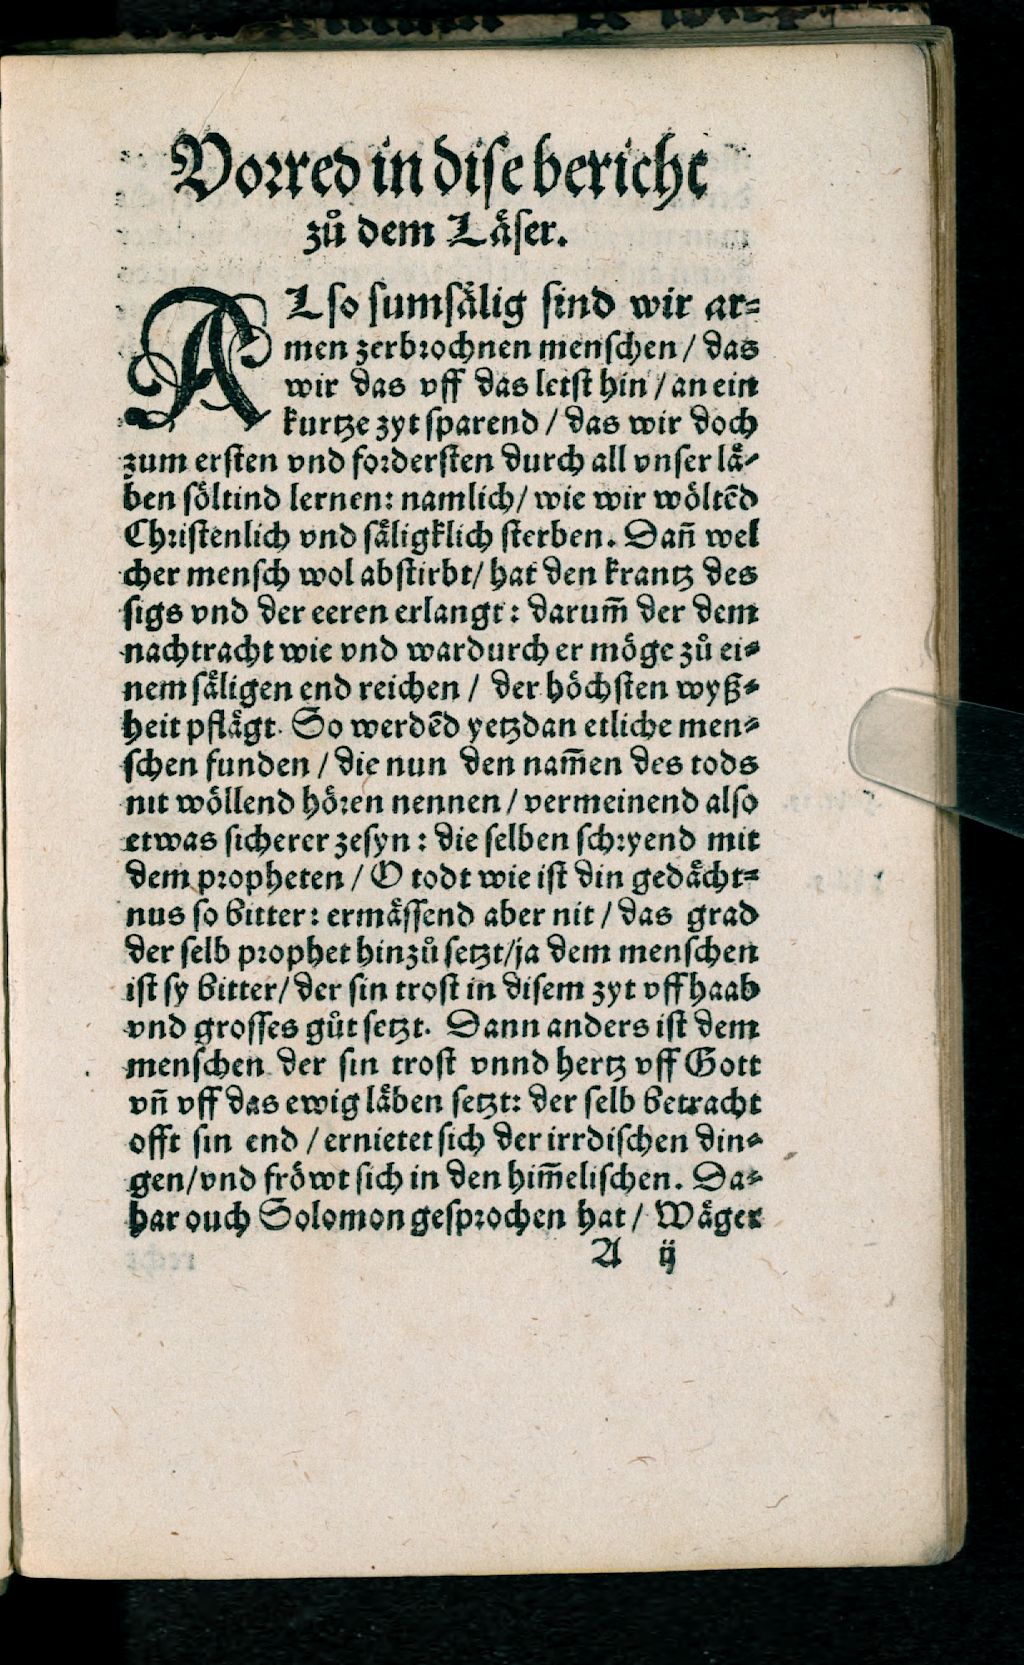 Vorred in dise bericht
zů dem Läser.
ALso sumsälig sind wir ar-
men zerbrochnen menschen / das
wir das vff das letst hin / an ein
kurtze zyt sparend / das wir doch
zum ersten vnd fordersten durch all vnser lä-
ben söltind lernen: namlich / wie wir wöltēd
Christenlich vnd säligklich sterben. Dañ wel
cher mensch wol abstirbt / hat den krantz des
sigs vnd der eeren erlangt: darum̃ der dem
nachtracht wie vnd wardurch er möge zů ei-
nem säligen end reichen / der höchsten wyß-
heit pflägt. So werdēd yetzdan etliche men-
schen funden / die nun den nam̃en des tods
nit wöllend hören nennen / vermeinend also
etwas sicherer zesyn: die selben schryend mit
dem propheten / O todt wie ist din gedächt-
nus so bitter: ermässend aber nit / das grad
der selb prophet hinzů setzt / ja dem menschen
ist sy bitter / der sin trost in disem zyt vff haab
vnd grosses gůt setzt. Dann anders ist dem
menschen der sin trost vnnd hertz vff Gott
vñ vff das ewig läben setzt: der selb betracht
offt sin end / ernietet sich der irrdischen din-
gen / vnd fröwt sich in den him̃elischen. Da-
har ouch Solomon gesprochen hat / Wäger
A ij